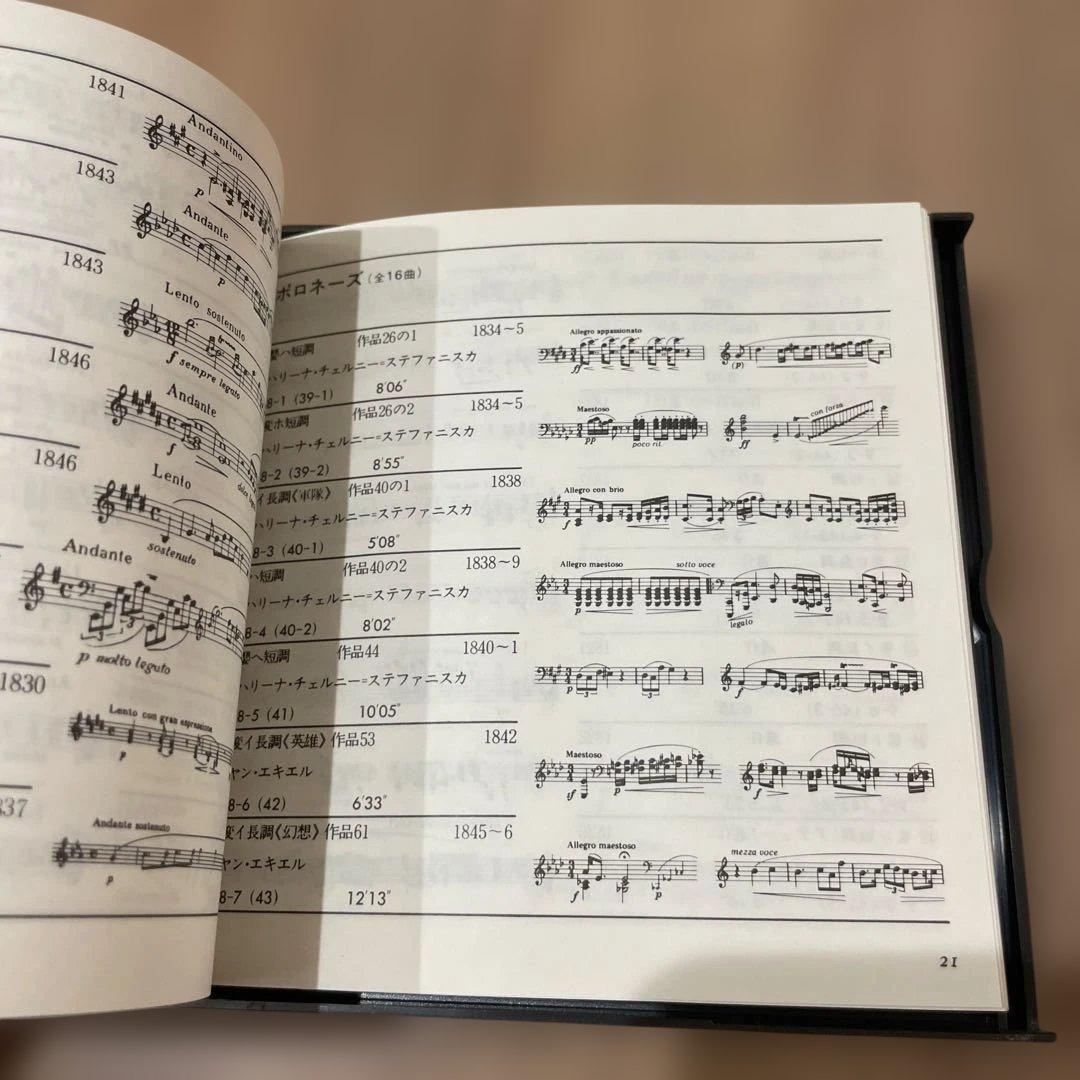 1841
Andantino
p
1843
Andante
p
1843
Lento sostenuto
f sempre legato
1846
Andante
f
dolce
1846
Lento
sostenuto
Andante
p molto legato
1830
Lento con gran espressione
p
837
Andante sostenuto
p
ポロネーズ(全16曲)
嬰ハ短調 作品26の1 1834～5
ハリーナ・チェルニー=ステファニスカ
8-1 (39-1) 8′06″
Allegro appassionato
ff
(p)
変ホ短調 作品26の2 1834～5
ハリーナ・チェルニー=ステファニスカ
8-2 (39-2) 8′55″
Maestoso
pp
poco rit.
con forza
イ長調《軍隊》 作品40の1 1838
ハリーナ・チェルニー=ステファニスカ
8-3 (40-1) 5′08″
Allegro con brio
f
ハ短調 作品40の2 1838～9
ハリーナ・チェルニー=ステファニスカ
8-4 (40-2) 8′02″
Allegro maestoso sotto voce
p
legato
嬰ヘ短調 作品44 1840～1
ハリーナ・チェルニー=ステファニスカ
8-5 (41) 10′05″
p
3 3
f
変イ長調《英雄》作品53 1842
ヤン・エキエル
8-6 (42) 6′33″
Maestoso
sf p
f
変イ長調《幻想》作品61 1845～6
ヤン・エキエル
8-7 (43) 12′13″
Allegro maestoso
f p
mezza voce
21